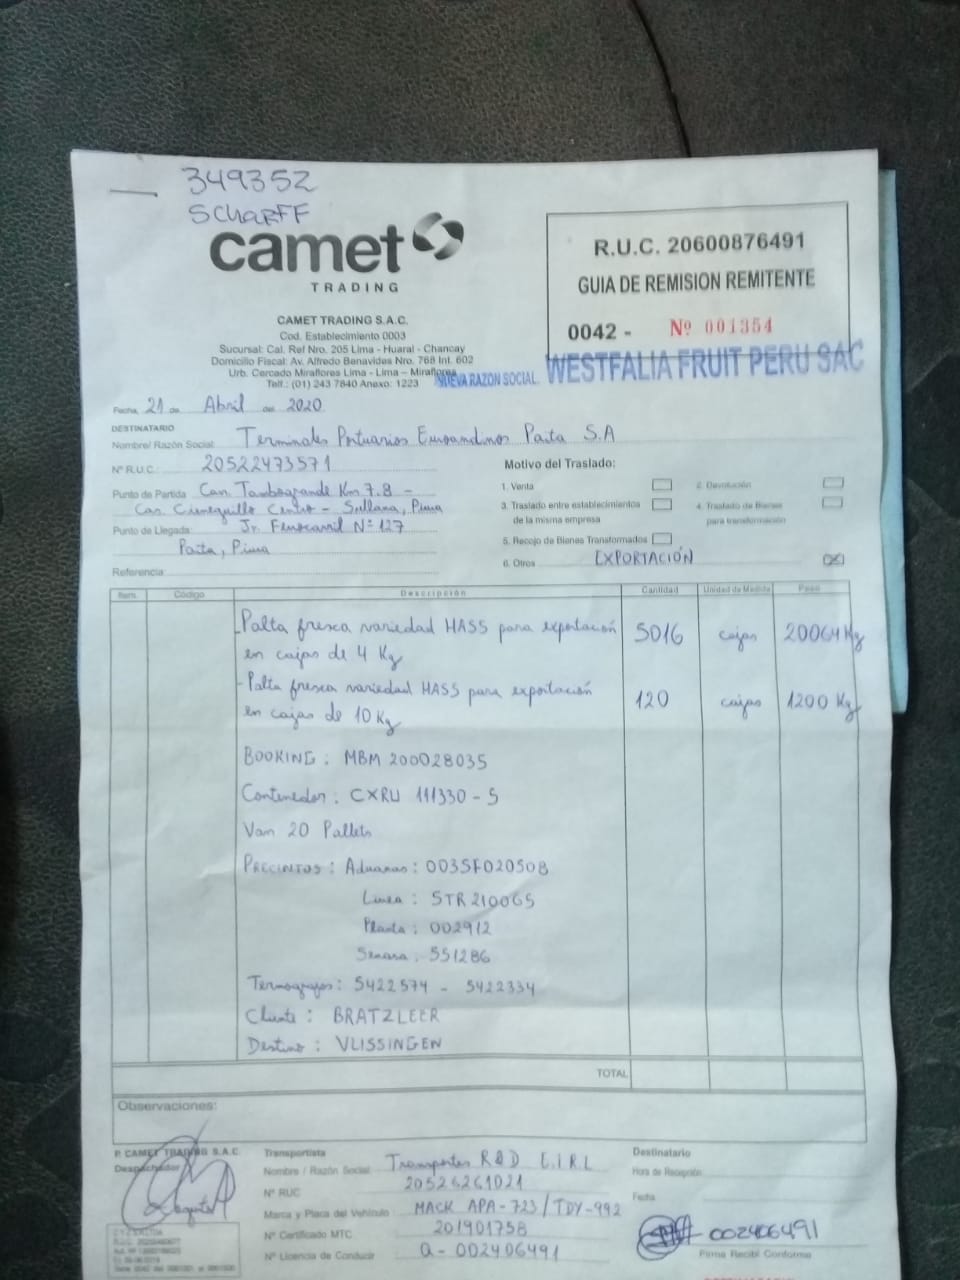 349352
SCHARFF
camet
TRADING
R.U.C. 20600876491
GUIA DE REMISION REMITENTE
0042 - Nº 001354
CAMET TRADING S.A.C.
Cod. Establecimiento 0003
Sucursal: Cal. Ref Nro. 205 Lima - Huaral - Chancay
Domicilio Fiscal: Av. Alfredo Benavides Nro. 768 Int. 602
Urb. Cercado Miraflores Lima - Lima - Miraflores
Telf.: (01) 243 7840 Anexo: 1223
NUEVA RAZON SOCIAL. WESTFALIA FRUIT PERU SAC
Fecha, 21 de Abril del 2020
DESTINATARIO
Nombre/ Razón Social: Terminales Portuarios Euroandinos Paita S.A
Nº R.U.C.: 20522473571
Punto de Partida Car. Tambogrande Km 7.8 -
Cas. Cieneguillo Centro - Sullana, Piura
Punto de Llegada: Jr. Ferrocarril Nº 127
Paita, Piura
Referencia:
Motivo del Traslado:
1. Venta
2. Devolución
3. Traslado entre establecimientos
de la misma empresa
4. Traslado de Bienes
para transformación
5. Recojo de Bienes Transformados
6. Otros EXPORTACIÓN
Item. Código Descripción Cantidad Unidad de Medida Peso
- Palta fresca variedad HASS para exportación 5016 cajas 20064 Kg
en cajas de 4 Kg
- Palta fresca variedad HASS para exportación 120 cajas 1200 Kg
en cajas de 10 Kg
BOOKING : MBM 200028035
Contenedor : CXRU 111330 - 5
Van 20 Pallets
PRECINTOS : Aduanas : 003SF020508
Linea : STR 210065
Planta : 002912
Senasa : 551286
Termografos : 5422574 - 5422334
Cliente : BRATZLEER
Destino : VLISSINGEN
TOTAL
Observaciones:
P. CAMET TRADING S.A.C.
Despachador
Transportista
Nombre / Razón Social Transportes R&D E.I.R.L
Nº RUC 20526261021
Marca y Placa del Vehículo : MACK APA-723 / TDY-992
Nº Certificado MTC 201901758
Nº Licencia de Conducir Q - 002406491
Destinatario
Hora de Recepción
Fecha
002406491
Firma Recibí Conforme